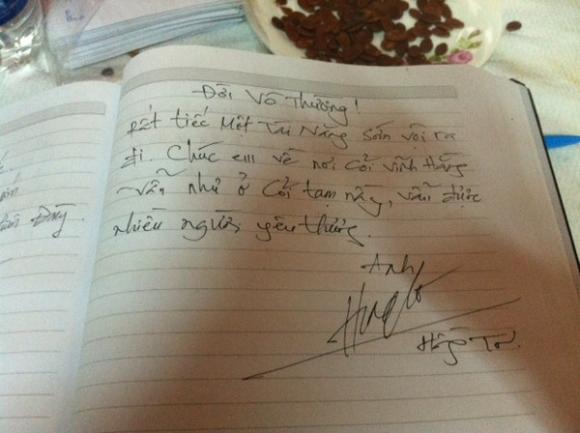 Đời Vô Thường!
Rất tiếc Một Tài Năng sớm vội ra
đi. Chúc em về nơi Cõi Vĩnh Hằng
vẫn như ở Cõi tạm này, vẫn được
nhiều người yêu thương.
Anh